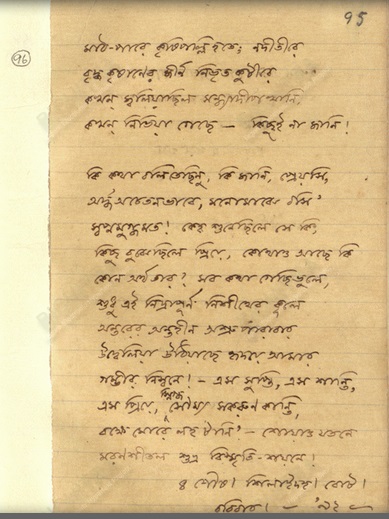 95
96
মাঠ-পারে কৃষিপল্লি হতে; নদীতীরে
বৃদ্ধ কৃষাণের জীর্ণ নিভৃত কুটীরে
কখন জ্বলিয়াছিল সন্ধ্যাদীপ খানি,
কখন নিভিয়া গেছে — কিছুই না জানি!
কি কথা বলিতেছিনু, কি জানি, প্রেয়সি,
অর্দ্ধঅচেতনভাবে, মনোমাঝে পশি'
স্বপ্নমুগ্ধমত! কেহ শুনেছিলে সে কি,
কিছু বুঝেছিলে প্রিয়ে, কোথাও আছে কি
কোন অর্থ তার? সব কথা গেছি ভুলে,
শুধু এই নিদ্রাপূর্ণ নিশীথের কূলে
অন্তরের অন্তহীন অশ্রু পারাবার
উদ্বেলিয়া উঠিয়াছে হৃদয়ে আমার
গম্ভীর নিস্বনে! - এস সুপ্তি, এস শান্তি,
এস প্রিয়ে, সৌম্য সকরুণ কান্তি,
বক্ষে মোরে লহ টানি' – শোয়াও যতনে
মরণশীতল শুভ্র বিস্মৃতি-শয়নে!
৪ পৌষ। শিলাইদহ। বোট।
রবিবার। — '৯২ —